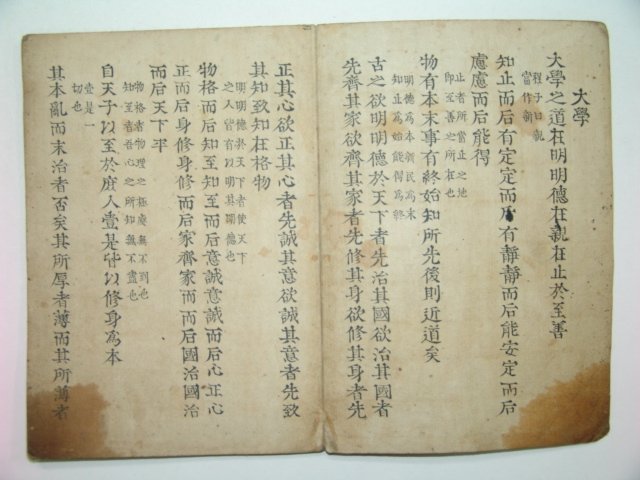 大學
大學之道在明明德在親在止於至善
程子曰親
當作新
知止而后有定定而后有靜靜而后能安定而后
慮慮而后能得
止者所當止之地
即至善之所在也
物有本末事有終始知所先後則近道矣
明德為本新民為末
知止為始能得為終
古之欲明明德於天下者先治其國欲治其國者
先齊其家欲齊其家者先修其身欲修其身者先
正其心欲正其心者先誠其意欲誠其意者先致
其知致知在格物
明明德於天下者使天下
之人皆有以明其明德也
物格而后知至知至而后意誠意誠而后心正心
正而后身修身修而后家齊家而后國治國治
而后天下平
物格者物理之極處無不到也
知至者吾心之所知無不盡也
自天子以至於庶人壹是皆以修身為本
壹是一
切也
其本亂而末治者否矣其所厚者薄而其所薄者